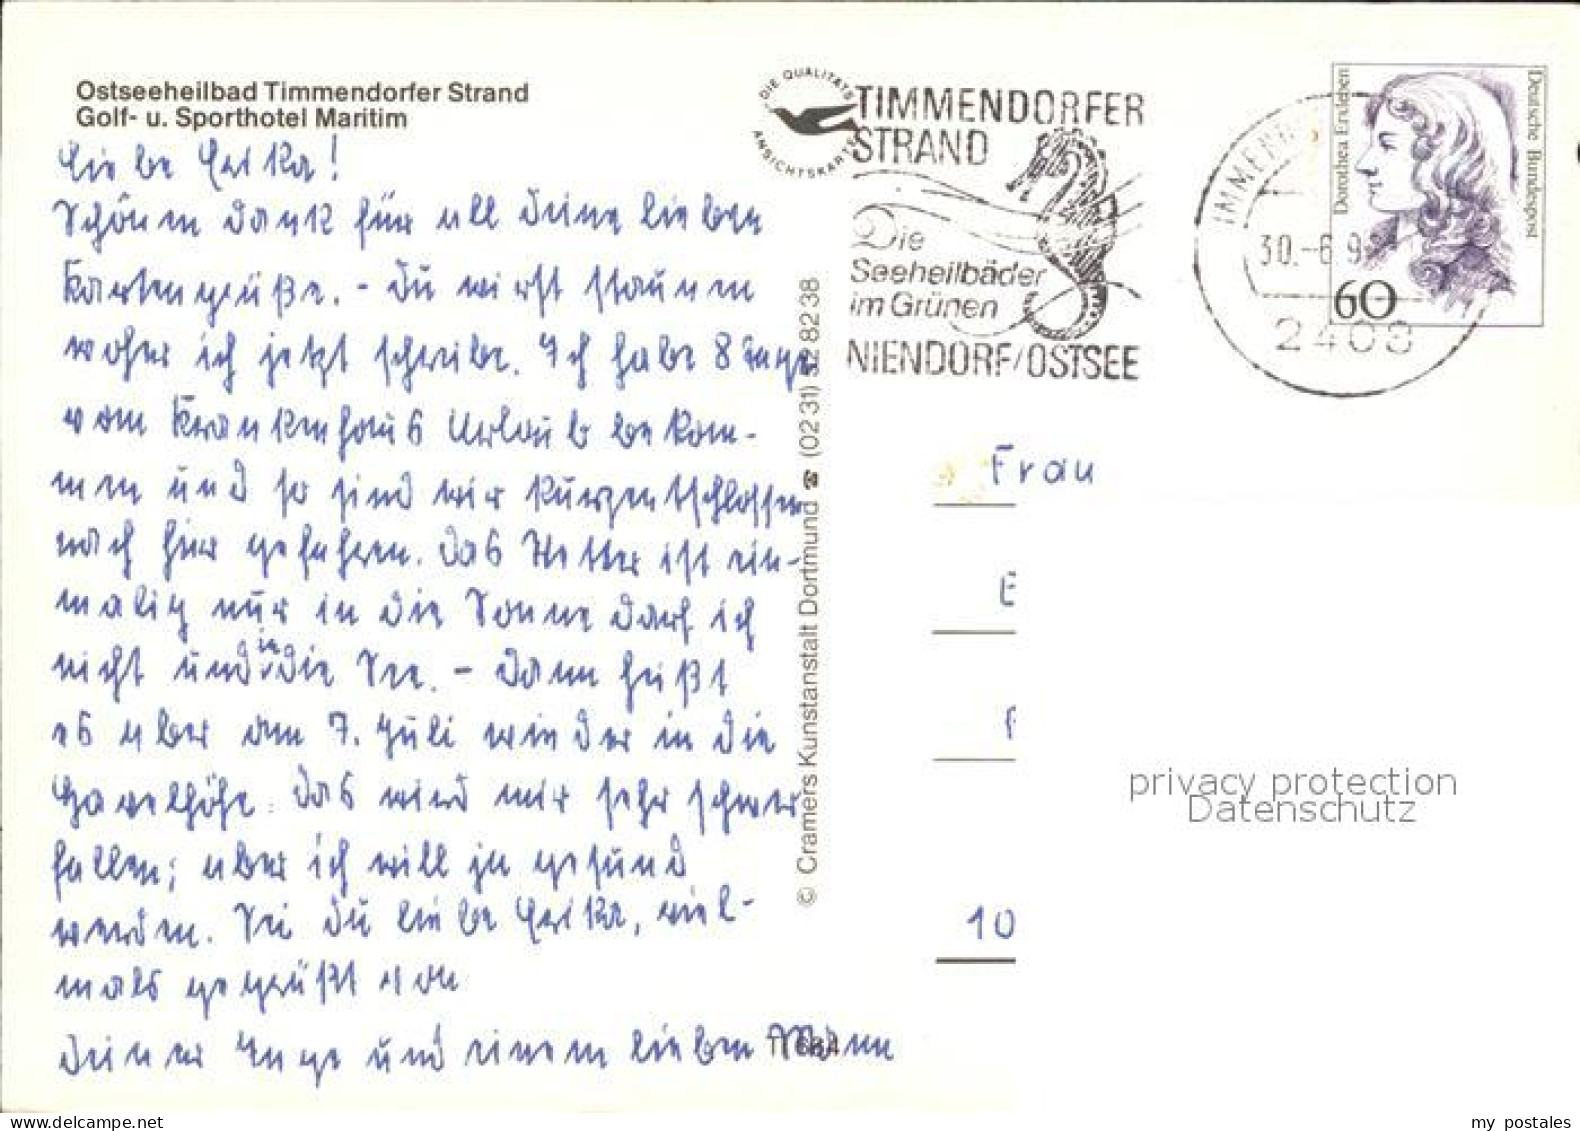 Ostseeheilbad Timmendorfer Strand
Golf- u. Sporthotel Maritim
Liebe Erika!
Schönen dank für all deine lieben
Kartengrüße. - Du wirst staunen
woher ich jetzt schreibe. Ich habe 8 Tage
vom Krankenhaus Urlaub bekom-
men und so sind wir kurzentschlossen
nach hier gefahren. Das Wetter ist ein-
malig nur in die Sonne darf ich
nicht und in die See. - Dann heißt
es aber am 7. Juli wieder in die
Havelhöhe. Das wird mir sehr schwer
fallen; aber ich will ja gesund
werden. Sei du liebe Erika, viel-
mals gegrüßt von
deiner Inge und einem lieben Mann
DIE QUALITÄTS
ANSICHTSKARTE
TIMMENDORFER
STRAND
Die
Seeheilbäder
im Grünen
NIENDORF/OSTSEE
30.-6.9
2408
Dorothea Erxleben
Deutsche Bundespost
60
© Cramers Kunstanstalt Dortmund ☎ (02 31) 52 82 38
Frau
10
privacy protection
Datenschutz
my postales